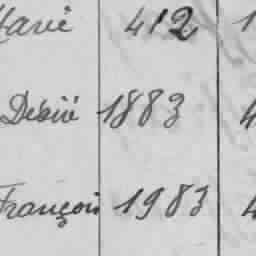 Marie 412 1
Désiré 1883 4
François 1983 4